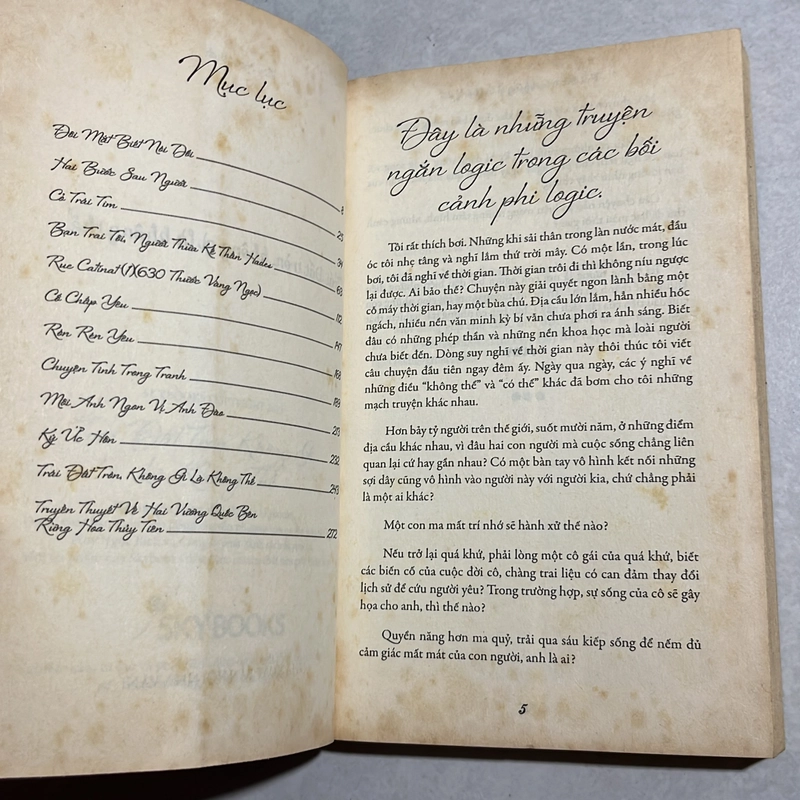 Mục lục
Đôi Mắt Biết Nói Dối
Hai Bước Sau Người 8
Cỏ Trái Tim 25
Bạn Trai Tôi, Người Thừa Kế Thần Hades 34
Rue Catinat (1)(630 Thước Vàng Ngọc) 63
Cố Chấp Yêu 112
Rón Rén Yêu 147
Chuyện Tình Trong Tranh 168
Môi Anh Ngon Vị Anh Đào 189
Ký Ức Hôn 213
232
Trái Đất Tròn, Không Gì Là Không Thể 243
Truyền Thuyết Về Hai Vương Quốc Bên
Rừng Hoa Thủy Tiên 272
SKYBOOKS
Đây là những truyện
ngắn logic trong các bối
cảnh phi logic.
Tôi rất thích bơi. Những khi sải thân trong làn nước mát, đầu
óc tôi nhẹ tâng và nghĩ lắm thứ trời mây. Có một lần, trong lúc
bơi, tôi đã nghĩ về thời gian. Thời gian trôi đi thì không níu ngược
lại được. Ai bảo thế? Chuyện này giải quyết ngon lành bằng một
cỗ máy thời gian, hay một bùa chú. Địa cầu lớn lắm, hẳn nhiều hốc
ngách, nhiều nền văn minh kỳ bí vẫn chưa phơi ra ánh sáng. Biết
đâu có những phép thần và những nền khoa học mà loài người
chưa biết đến. Dòng suy nghĩ về thời gian này thôi thúc tôi viết
câu chuyện đầu tiên ngay đêm ấy. Ngày qua ngày, các ý nghĩ về
những điều “không thể” và “có thể” khác đã bơm cho tôi những
mạch truyện khác nhau.
Hơn bảy tỷ người trên thế giới, suốt mười năm, ở những điểm
địa cầu khác nhau, vì đâu hai con người mà cuộc sống chẳng liên
quan lại cứ hay gần nhau? Có một bàn tay vô hình kết nối những
sợi dây cũng vô hình vào người này với người kia, chứ chẳng phải
là một ai khác?
Một con ma mất trí nhớ sẽ hành xử thế nào?
Nếu trở lại quá khứ, phải lòng một cô gái của quá khứ, biết
các biến cố của cuộc đời cô, chàng trai liệu có can đảm thay đổi
lịch sử để cứu người yêu? Trong trường hợp, sự sống của cô sẽ gây
họa cho anh, thì thế nào?
Quyền năng hơn ma quỷ, trải qua sáu kiếp sống để nếm đủ
cảm giác mất mát của con người, anh là ai?
5